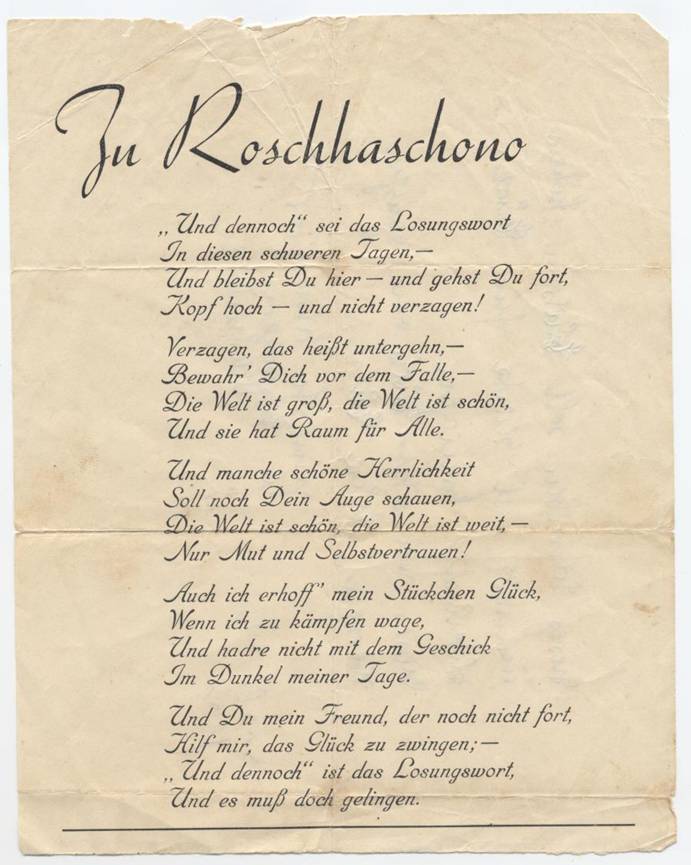 Zu Roschhaschono
„Und dennoch“ sei das Losungswort
In diesen schweren Tagen,—
Und bleibst Du hier — und gehst Du fort,
Kopf hoch — und nicht verzagen!
Verzagen, das heißt untergehn,—
Bewahr’ Dich vor dem Falle,—
Die Welt ist groß, die Welt ist schön,
Und sie hat Raum für Alle.
Und manche schöne Herrlichkeit
Soll noch Dein Auge schauen,
Die Welt ist schön, die Welt ist weit,—
Nur Mut und Selbstvertrauen!
Auch ich erhoff’ mein Stückchen Glück,
Wenn ich zu kämpfen wage,
Und hadre nicht mit dem Geschick
Im Dunkel meiner Tage.
Und Du mein Freund, der noch nicht fort,
Hilf mir, das Glück zu zwingen;—
„Und dennoch“ ist das Losungswort,
Und es muß doch gelingen.